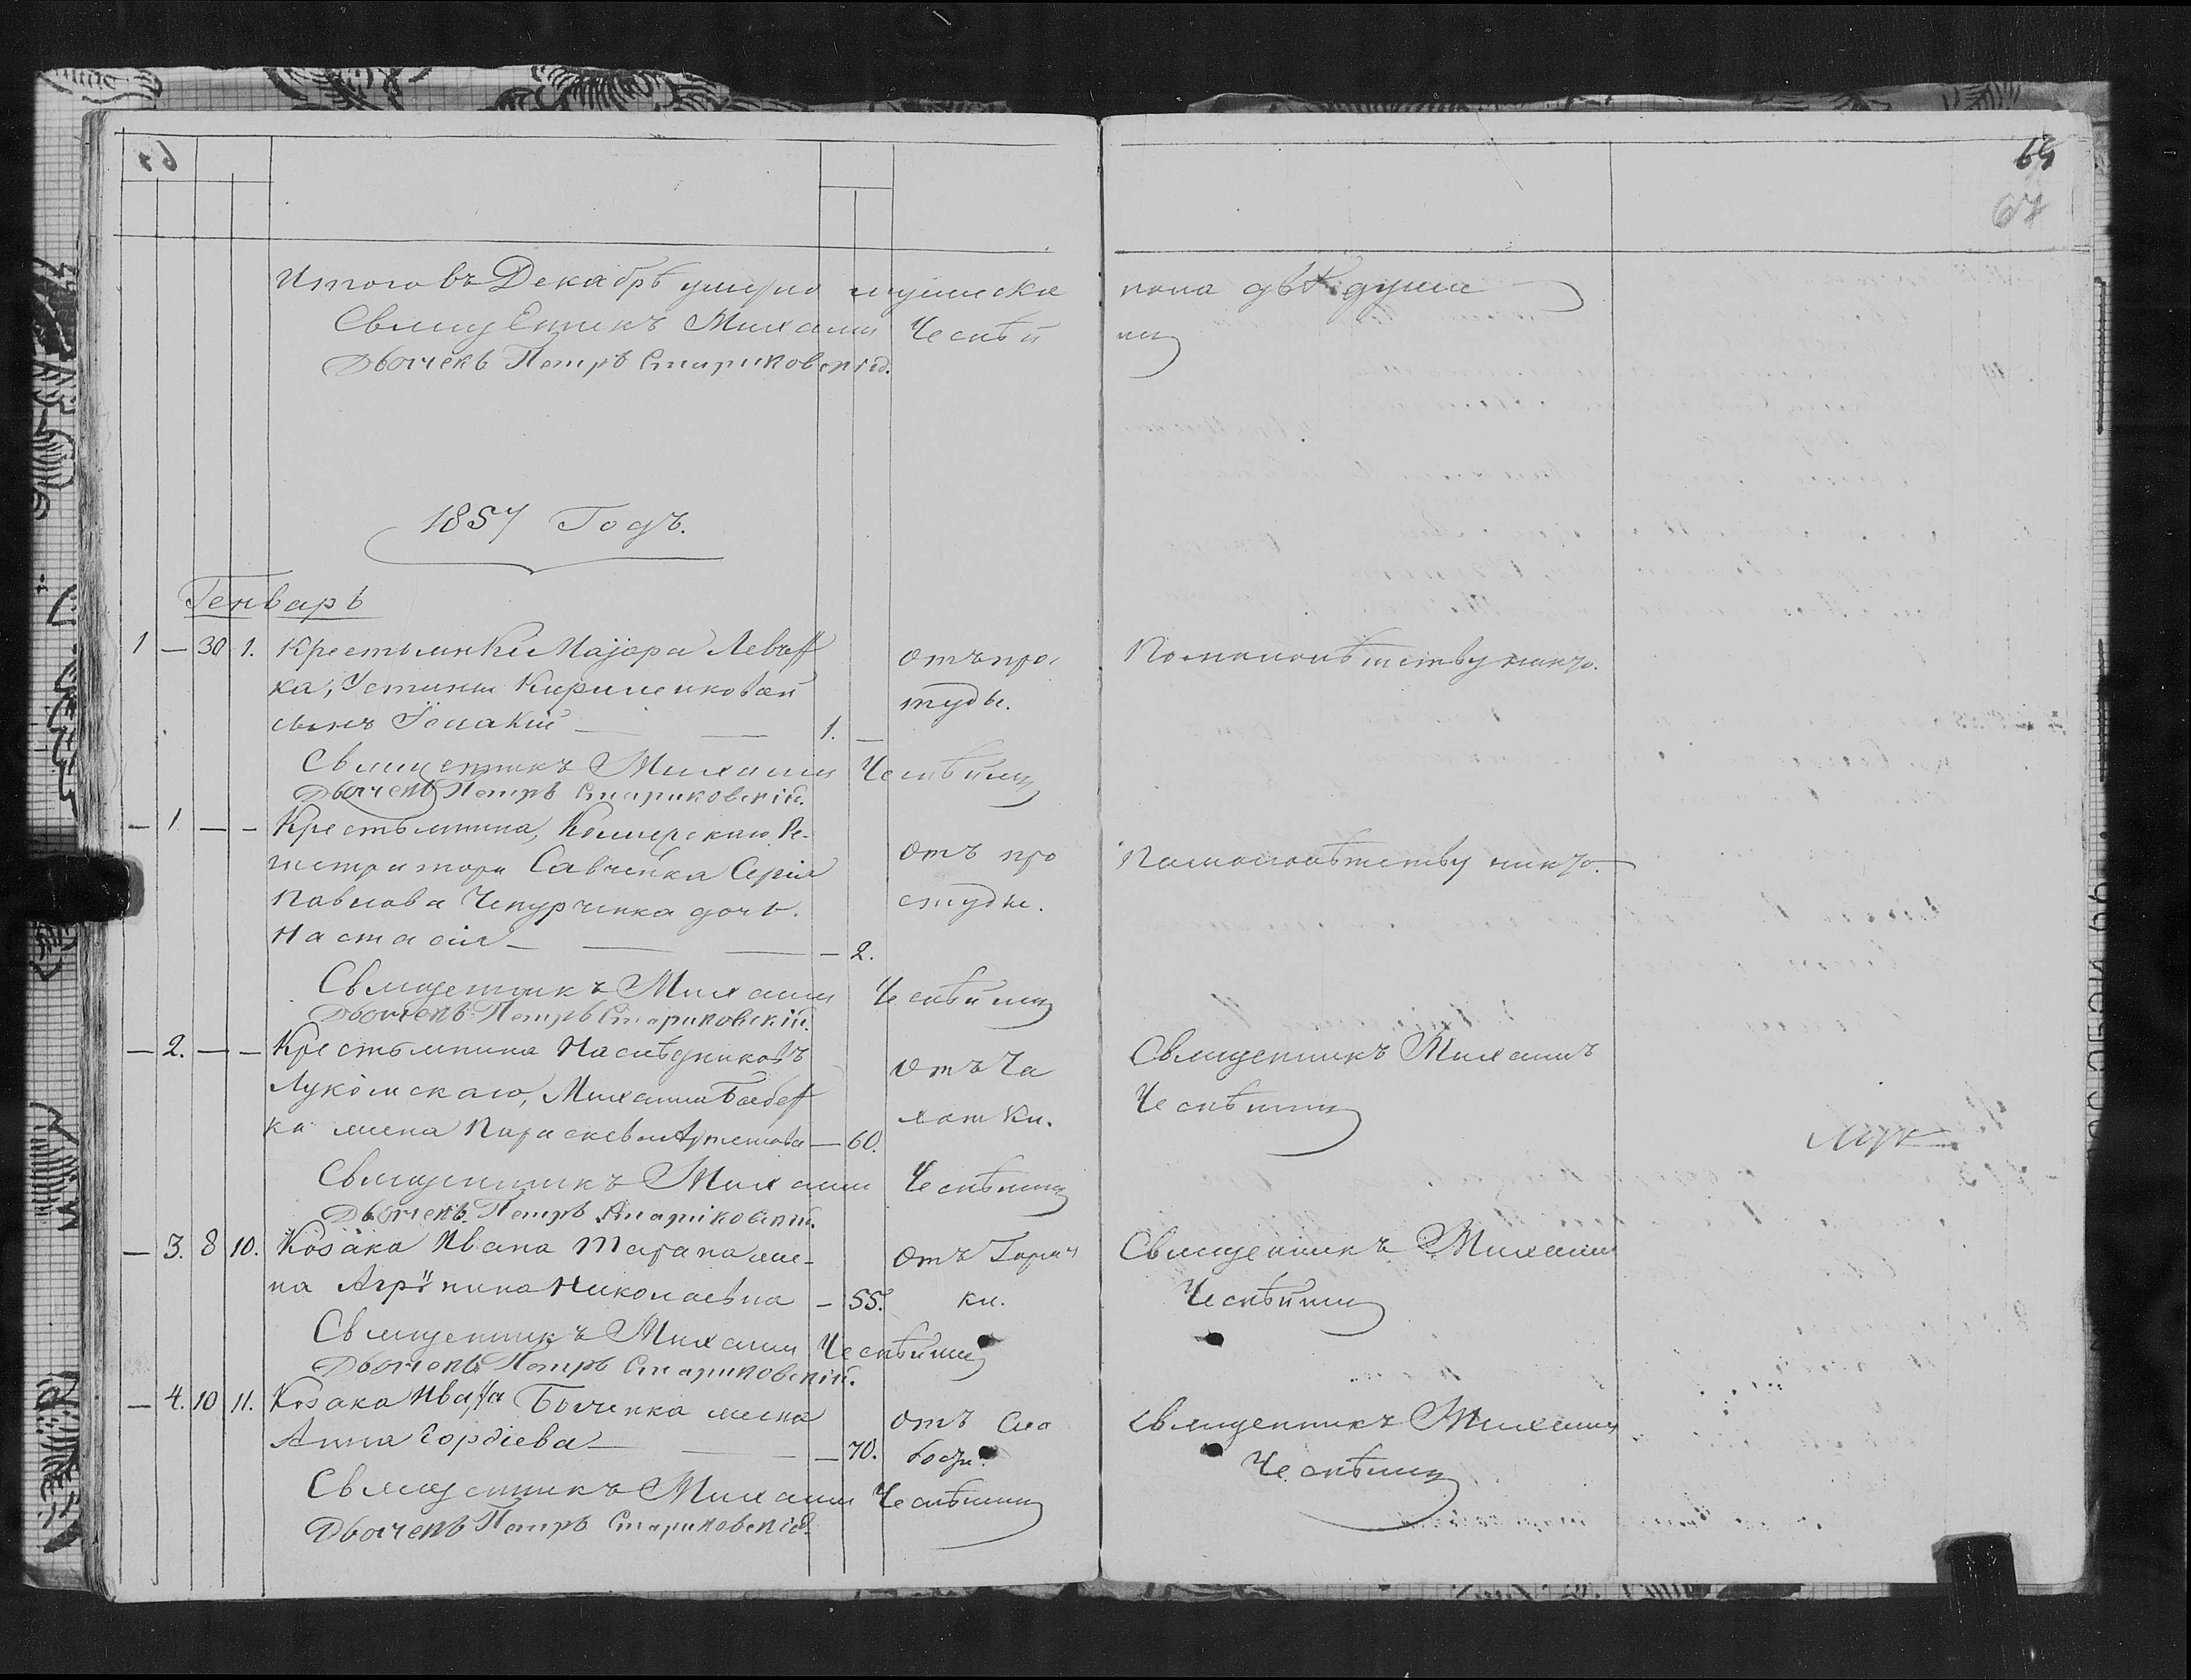 69
67
Итого въ Декабрѣ умерло мужеска пола двѣ души
Священникъ Михаилъ
Дьячекъ Петръ Стариковскій.
1857 Годъ.
Генварь
1 — 30 1. Крестьянки Маіора Левч
ка, Устины Кириленковой
сынъ Іоакій — — 1. —
отъ про
студы.
По малолѣтству
Священникъ Михаилъ
Дьячекъ Петръ Стариковскій.
— 1 — — Крестьянина, Ре-
гистратора Савченка Сергія
Павлова Чепурченка дочь
Настасія — — — 2.
отъ про
студы.
По малолѣтству
Священникъ Михаилъ
Дьячекъ Петръ Стариковскій.
— 2. — — Крестьянина Наслѣдниковъ
Лукомскаго, Михаила
ка жена Параскева — 60.
отъ Ча
хотки.
Священникъ Михаилъ
Священникъ Михаилъ
Дьячекъ Петръ Стариковскій.
— 3. 8 10. Козака Ивана Тарана же-
на Агрипина Николаевна — 55.
отъ Горяч
ки.
Священникъ Михаилъ
Священникъ Михаилъ
Дьячекъ Петръ Стариковскій.
— 4. 10 11. Козака Ивана жена
Анна Гордіева — — — 70.
отъ Сла
бости.
Священникъ Михаилъ
Священникъ Михаилъ
Дьячекъ Петръ Стариковскій